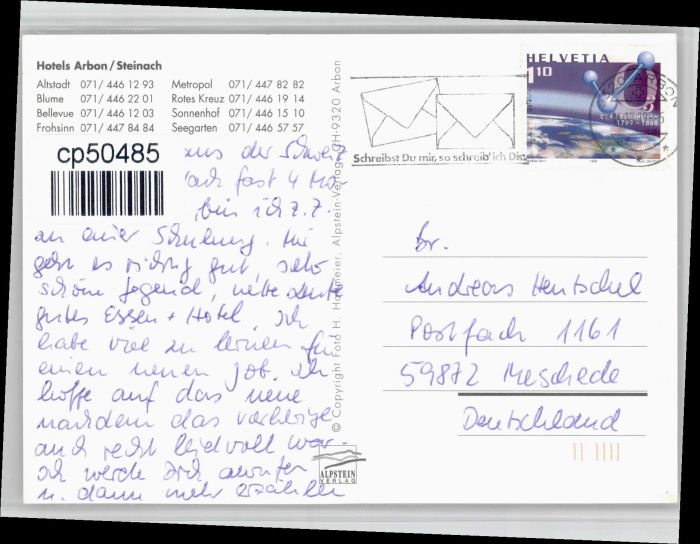 Hotels Arbon/Steinach
Altstadt 071/ 446 12 93 Metropol 071/ 447 82 82
Blume 071/ 446 22 01 Rotes Kreuz 071/ 446 19 14
Bellevue 071/ 446 12 03 Sonnenhof 071/ 446 15 10
Frohsinn 071/ 447 84 84 Seegarten 071/ 446 57 57
cp50485
aus der Schweiz
fast 4 Mo
bin ich z. Z.
an einer Schulung. Mir
geht es richtig gut, sehr
schöne Gegend, nette Leute
gutes Essen + Hotel. Ich
habe viel zu lernen für
einen neuen Job. Ich
hoffe auf das neue
nachdem das vorherige
auch recht leidvoll war.
Ich werde Dich anrufen
u. dann mehr erzählen
© Copyright Foto H. Alpstein-Verlag, CH-9320 Arbon
ALPSTEIN
VERLAG
Schreibst Du mir, so schreib' ich Dir
HELVETIA
1.10
1799 - 1868
Br.
Andreas Hentschel
Postfach 1161
59872 Meschede
Deutschland